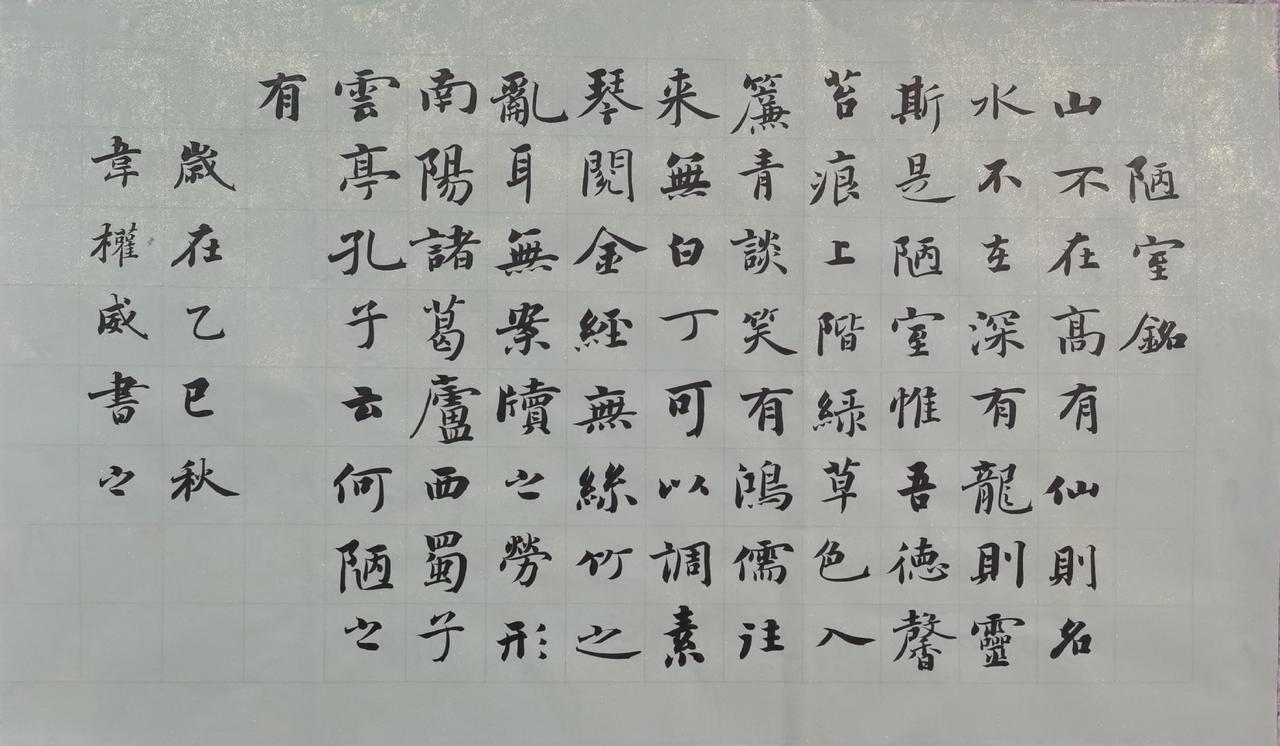 陋室銘
山不在髙有仙則名
水不在深有龍則靈
斯是陋室惟吾徳馨
苔痕上階綠草色入
簾青談笑有鴻儒往
来無白丁可以調素
琴閱金經無絲竹之
亂耳無案牘之勞形
南陽諸葛廬西蜀子
雲亭孔子云何陋之
有
歲在乙巳秋
韋權威書之